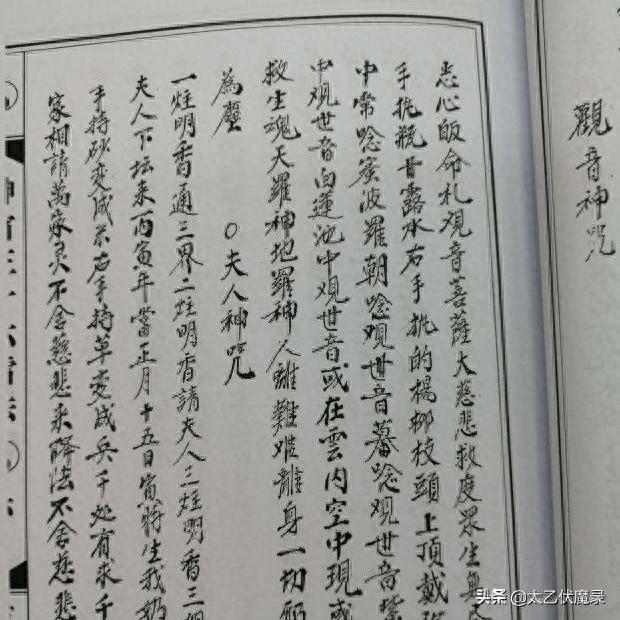 觀音神咒
志心皈命札观音菩薩大慈悲救度眾生
手执瓶甘露水右手执的楊柳枝頭上頂戴
中常唸蜜波羅朝唸观世音暮唸观世音
中观世音白蓮池中观世音或在雲内空中現或
救生魂天羅神地羅神人離難难離身一切
為塵
○夫人神咒
一炷明香通三界二炷明香請夫人三炷明香三
夫人下坛来丙寅年當正月十五日寅時生我
手持砂变成米右手持草变成兵千处有求千
家相請萬家灵不舍慈悲来降法不舍慈悲
头条 @太乙伏魔录